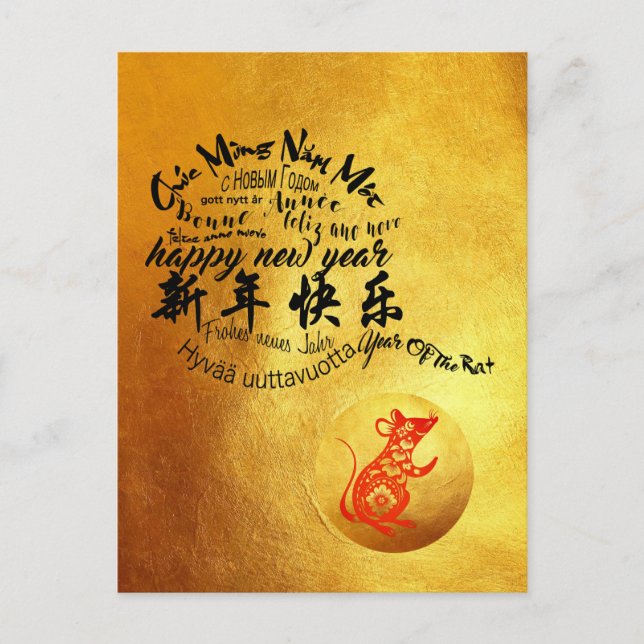 Chúc Mừng Năm Mới
с Новым Годом
gott nytt år Année
Bonne feliz ano novo
felice anno nuovo
happy new year
新年快乐
Frohes neues Jahr
Hyvää uuttavuotta Year Of The Rat